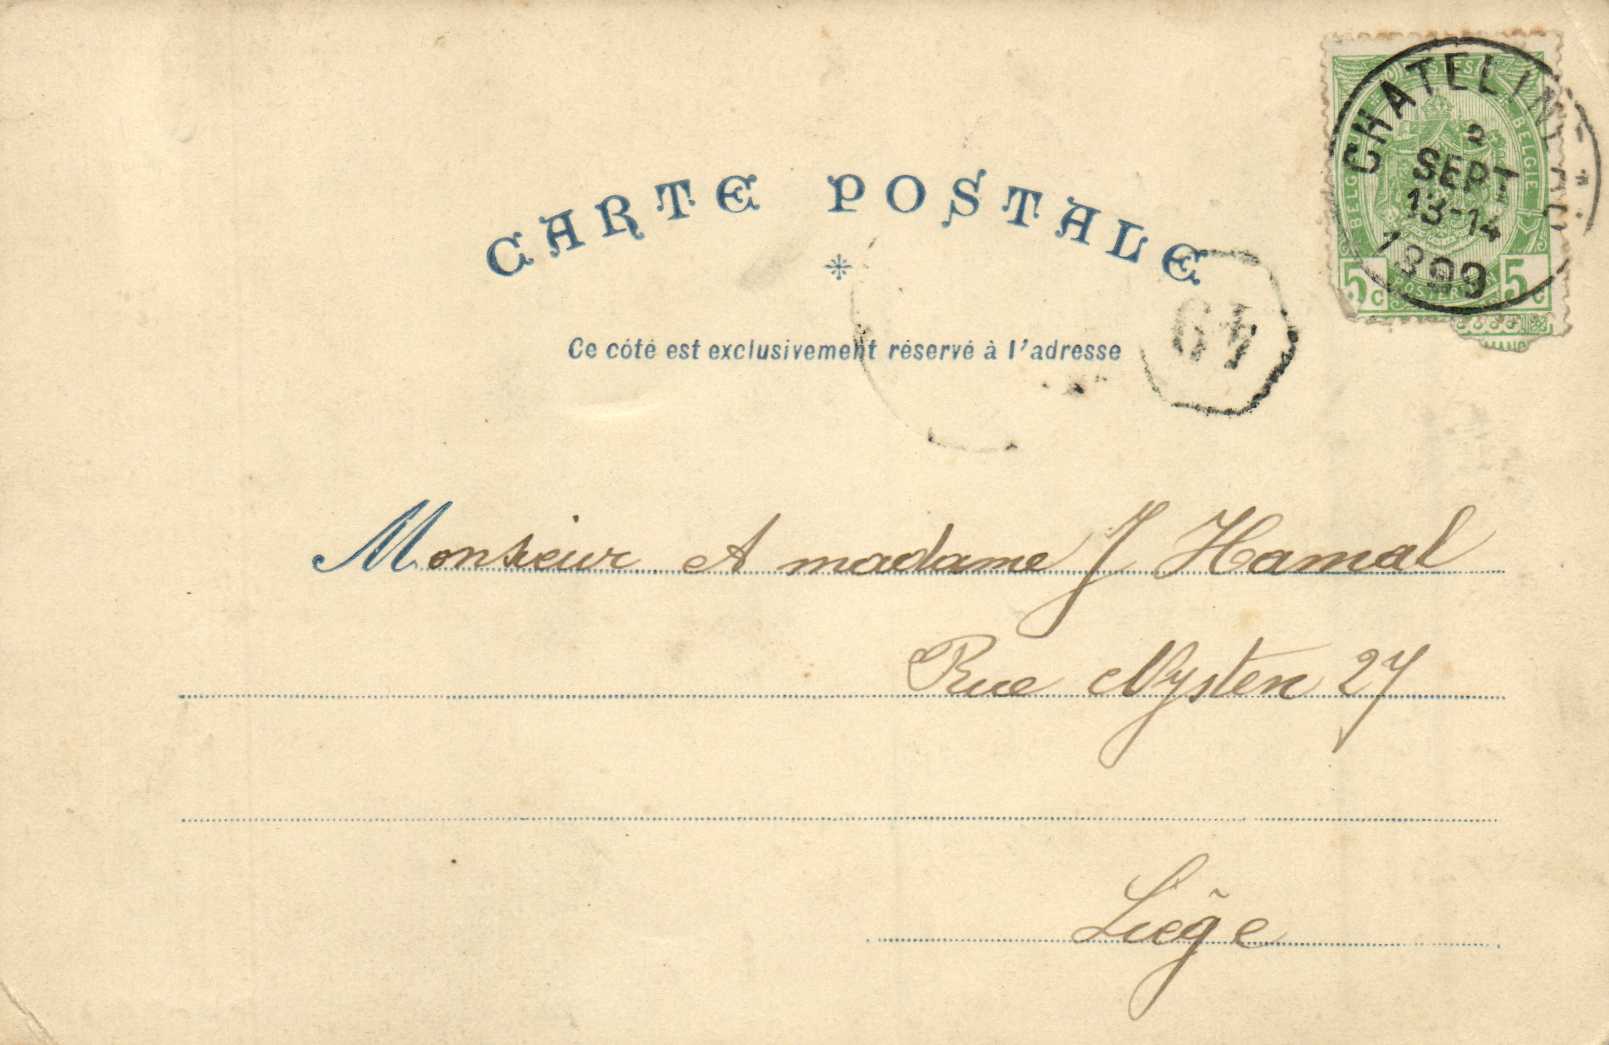 CARTE POSTALE
Ce côté est exclusivement réservé à l'adresse
BELGIQUE POSTES BELGIE
CHATELINEAU
2
SEPT
13-14
1899
5c 5c
49
Monsieur et madame J Hamal
Rue Nysten 27
Liège